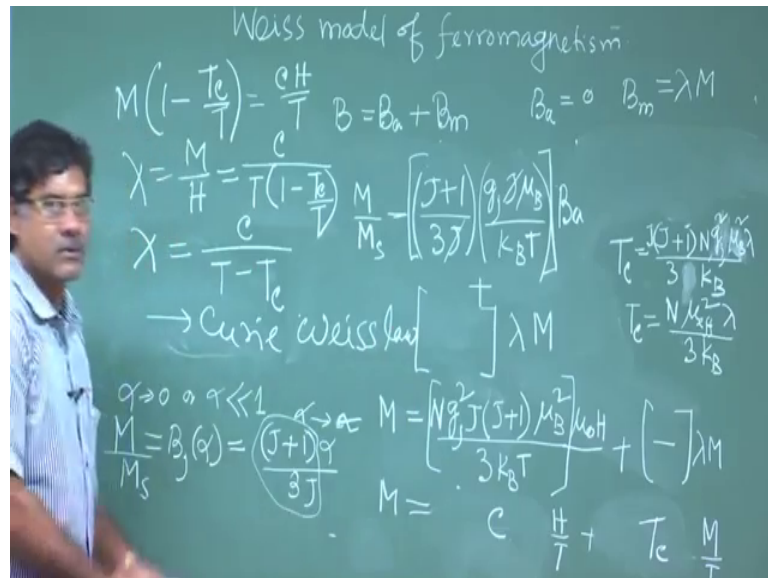 Weiss model of ferromagnetism.
M(1 - Tc/T) = CH/T B = Ba + Bm Ba = 0 Bm = λM
χ = M/H = C/T(1 - Tc/T)
M/Ms = [(J+1/3J)(gJ J μB/kBT)] Ba
χ = C/T - Tc
+
→ Curie Weiss law [ ] λM
Tc = J(J+1) N g² μB² λ/3 kB
Tc = N μeff² λ/3 kB
α→0 or α<<1
M/Ms = BJ(α) = (J+1)α/3J
M = [N gJ² J(J+1) μB²/3 kBT] μ0H + [-] λM
M = C H/T + Tc M/T